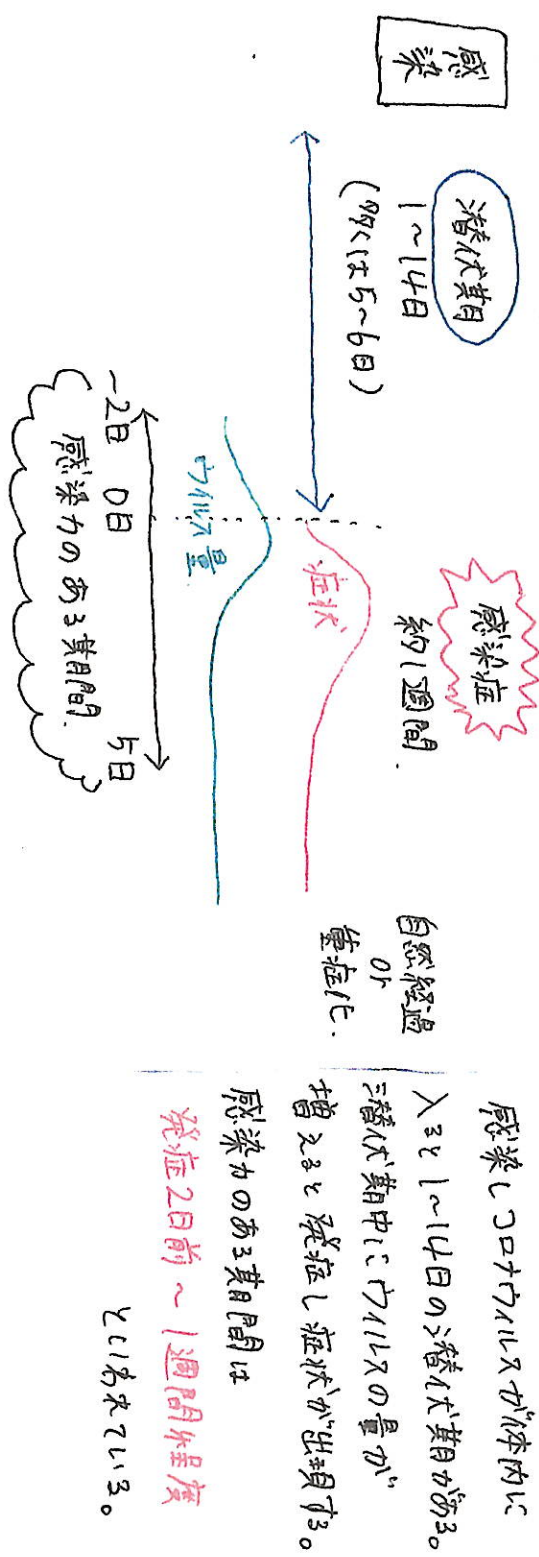 感染
潜伏期
1~14日
(多くは5~6日)
感染症
約1週間.
自然経過
or
重症化.
症状
ウイルス量
~2日 0日 5日
感染力のある期間.
感染しコロナウィルスが体内に
入ると1~14日の潜伏期がある。
潜伏期中にウィルスの量が
増えると発症し症状が出現する。
感染力のある期間は
発症2日前~1週間程度
といわれている。